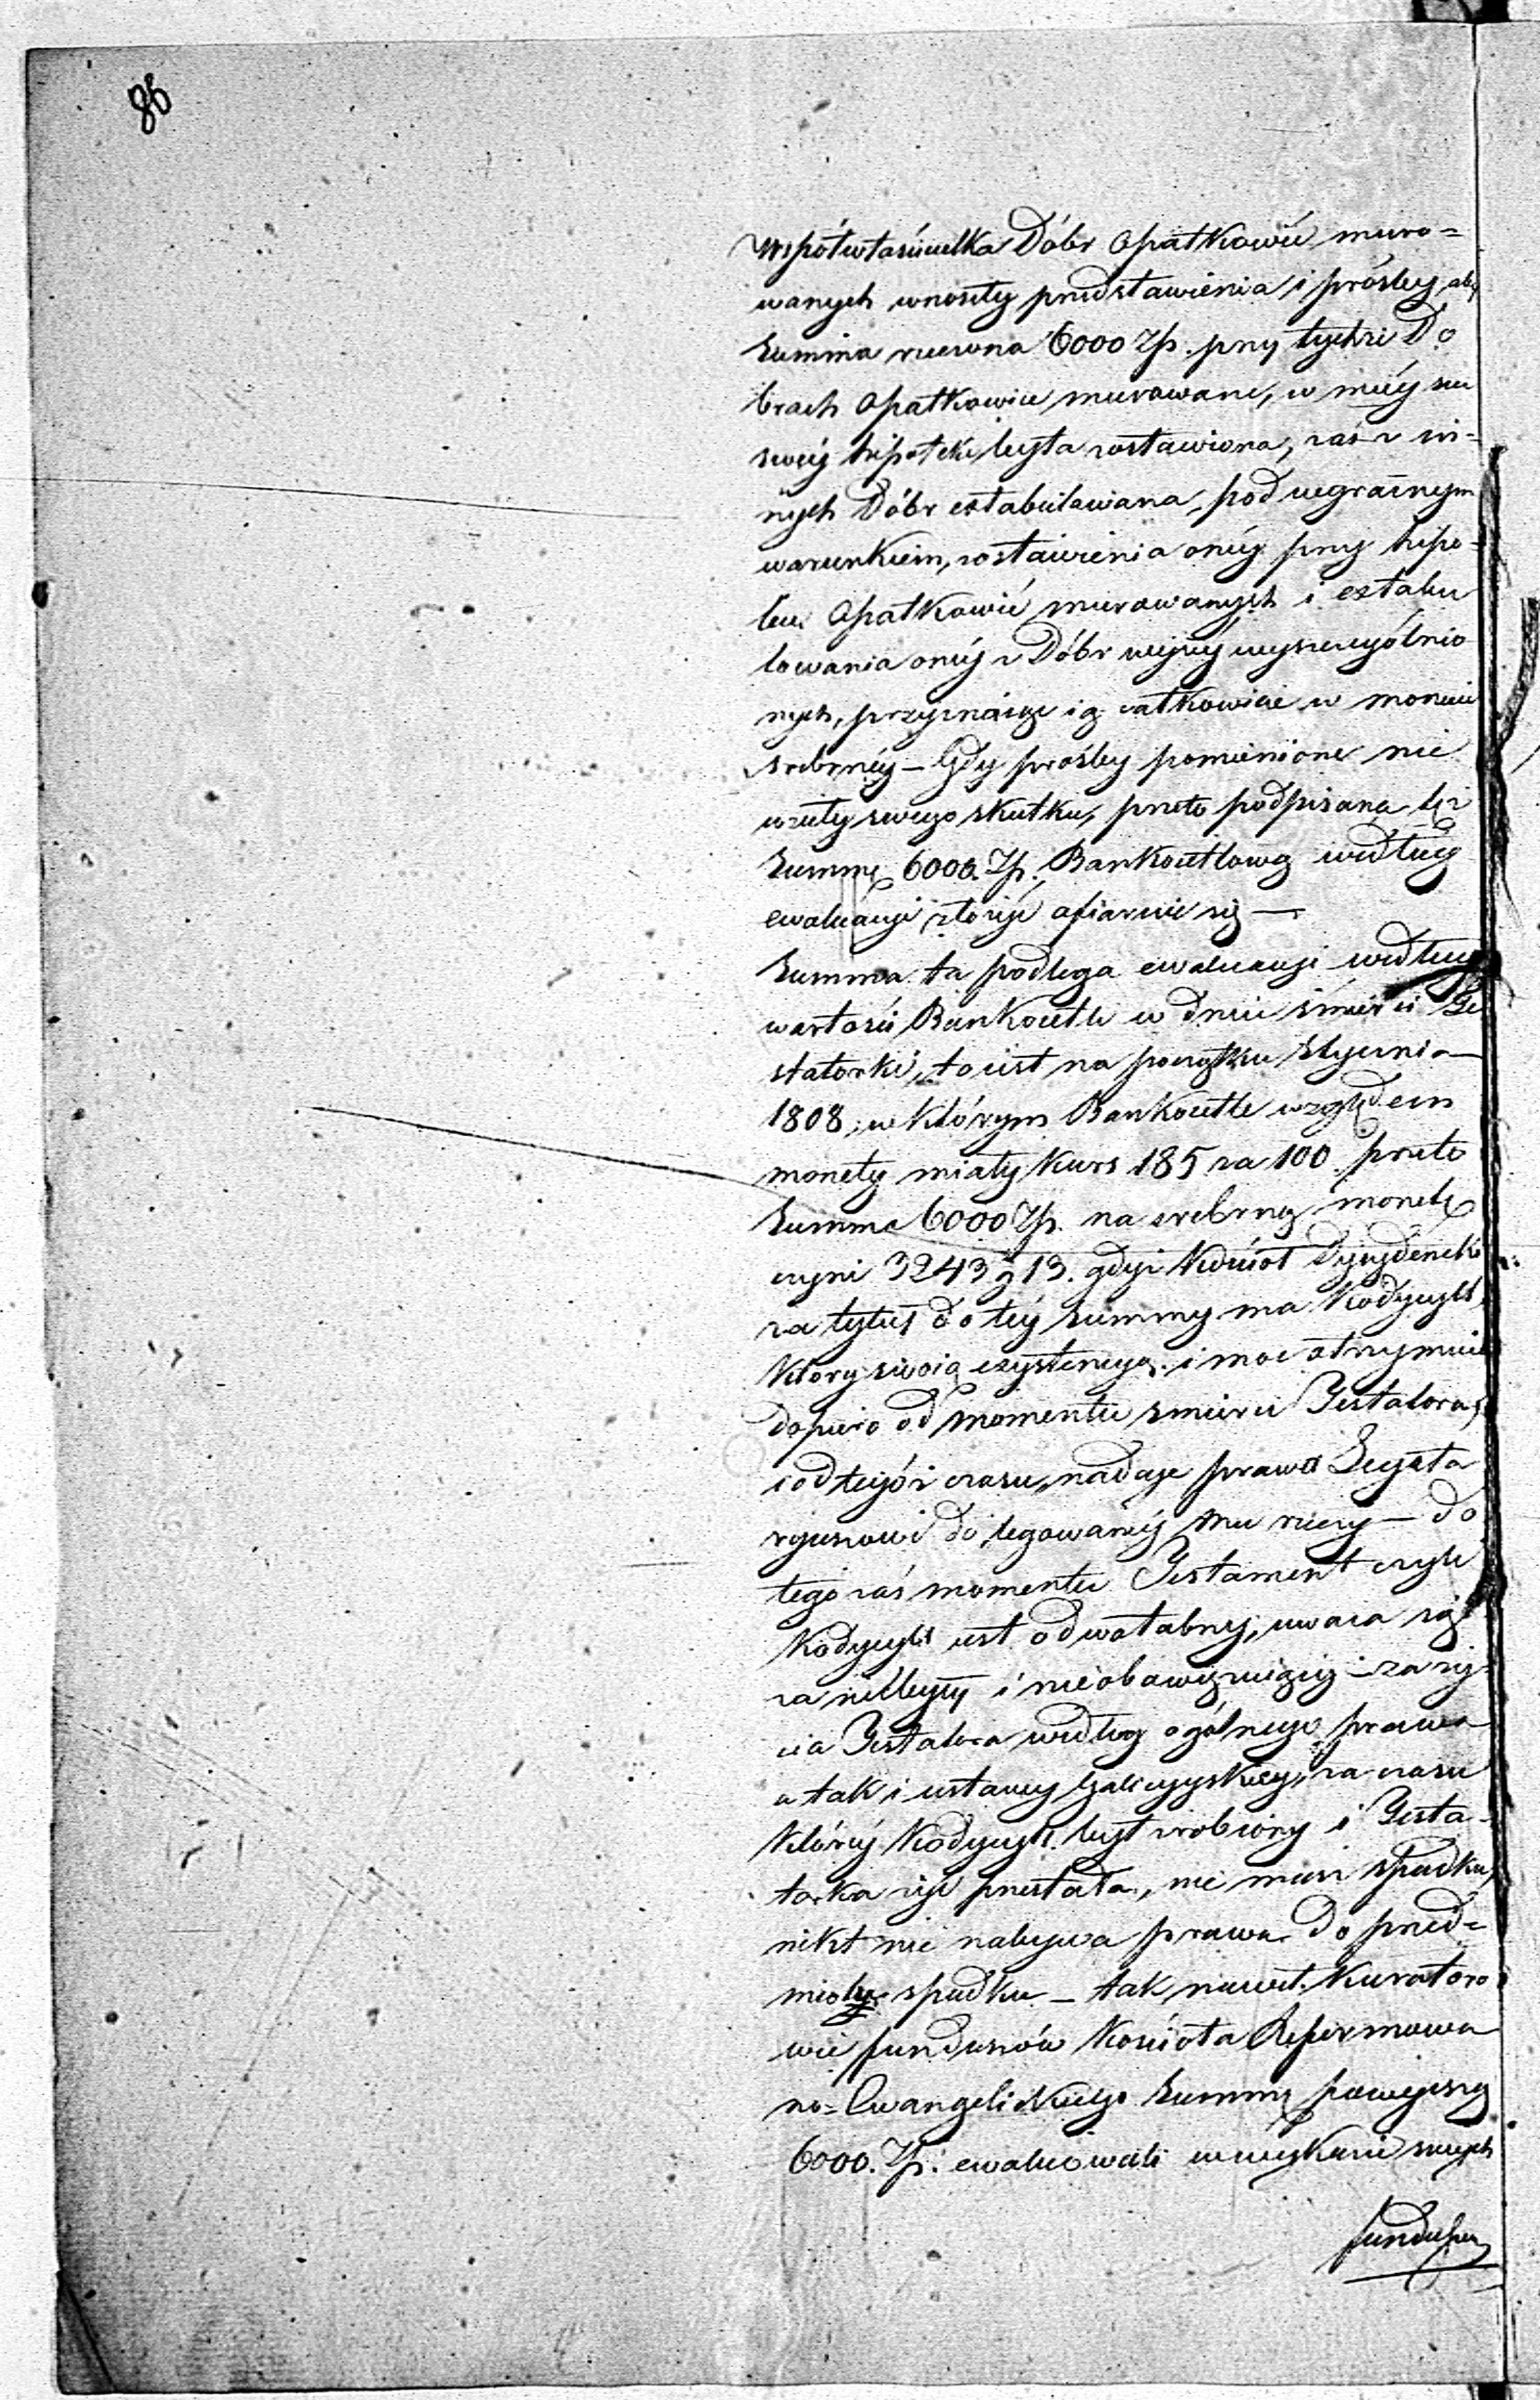 86
Współwłaścicielka Dóbr Opatkowic muro=
wanych wnosiły przedstawienia i prośby, aby
Summa rzeczona 6000 Zp. przy tychże Do
brach Opatkowice murowane, w mieyscu
swéy hipoteki była zostawiona, zaś z in=
nych Dóbr extabulowana, pod wyraźnym
warunkiem, zostawienia onéy przy hipo=
tece Opatkowic murowanych i extabu
lowania onéy z Dóbr wyżéy wyszczególnio
nych, przyznaiąc ią całkowicie w monecie
srebrnéy — Gdy prośby pomienione nie
wzięły swego skutku, przeto podpisana tęż
Summę 6000. Zp. Bankocetlową według
ewaluacyi złożyć ofiaruie się —
Summa ta podlega ewaluacyi według
wartości Bankocetli w dniu śmierci Te
statorki, to iest na początku Stycznia
1808, w którym Bankocetle względem
monety miały kurs 185 za 100. przeto
Summa 6000 Zp. na srebrną monetę
czyni 3243 g 13. gdyż Kościoł Dyssydencki
za tytuł do téy Summy ma Kodycyll,
który swoią exystencyą i moc otrzymuie
dopiero od momentu śmierci Testatora,
i od tegóż czasu, nadaje prawo Legata
ryuszowi do legowanéy mu rzeczy — do
tego zaś momentu Testament czyli
Kodycyll iest odwołalny, uważa się
za niebyły i nieobowiązuiący — za ży=
cia Testatora według ogólnego prawa
a tak i ustawy Galicyyskiey, za czasu
któréy Kodycyll był zrobiony i Testa=
torka żyć przestała, nie masz spadku,
nikt nie nabywa prawa do przed=
miotu spadku — tak nawet Kuratoro
wie funduszów Kościoła Reformowa
no=Ewangelickiego Summę powyższą
6000. Zp. ewaluowali w wykazie swych
funduszy